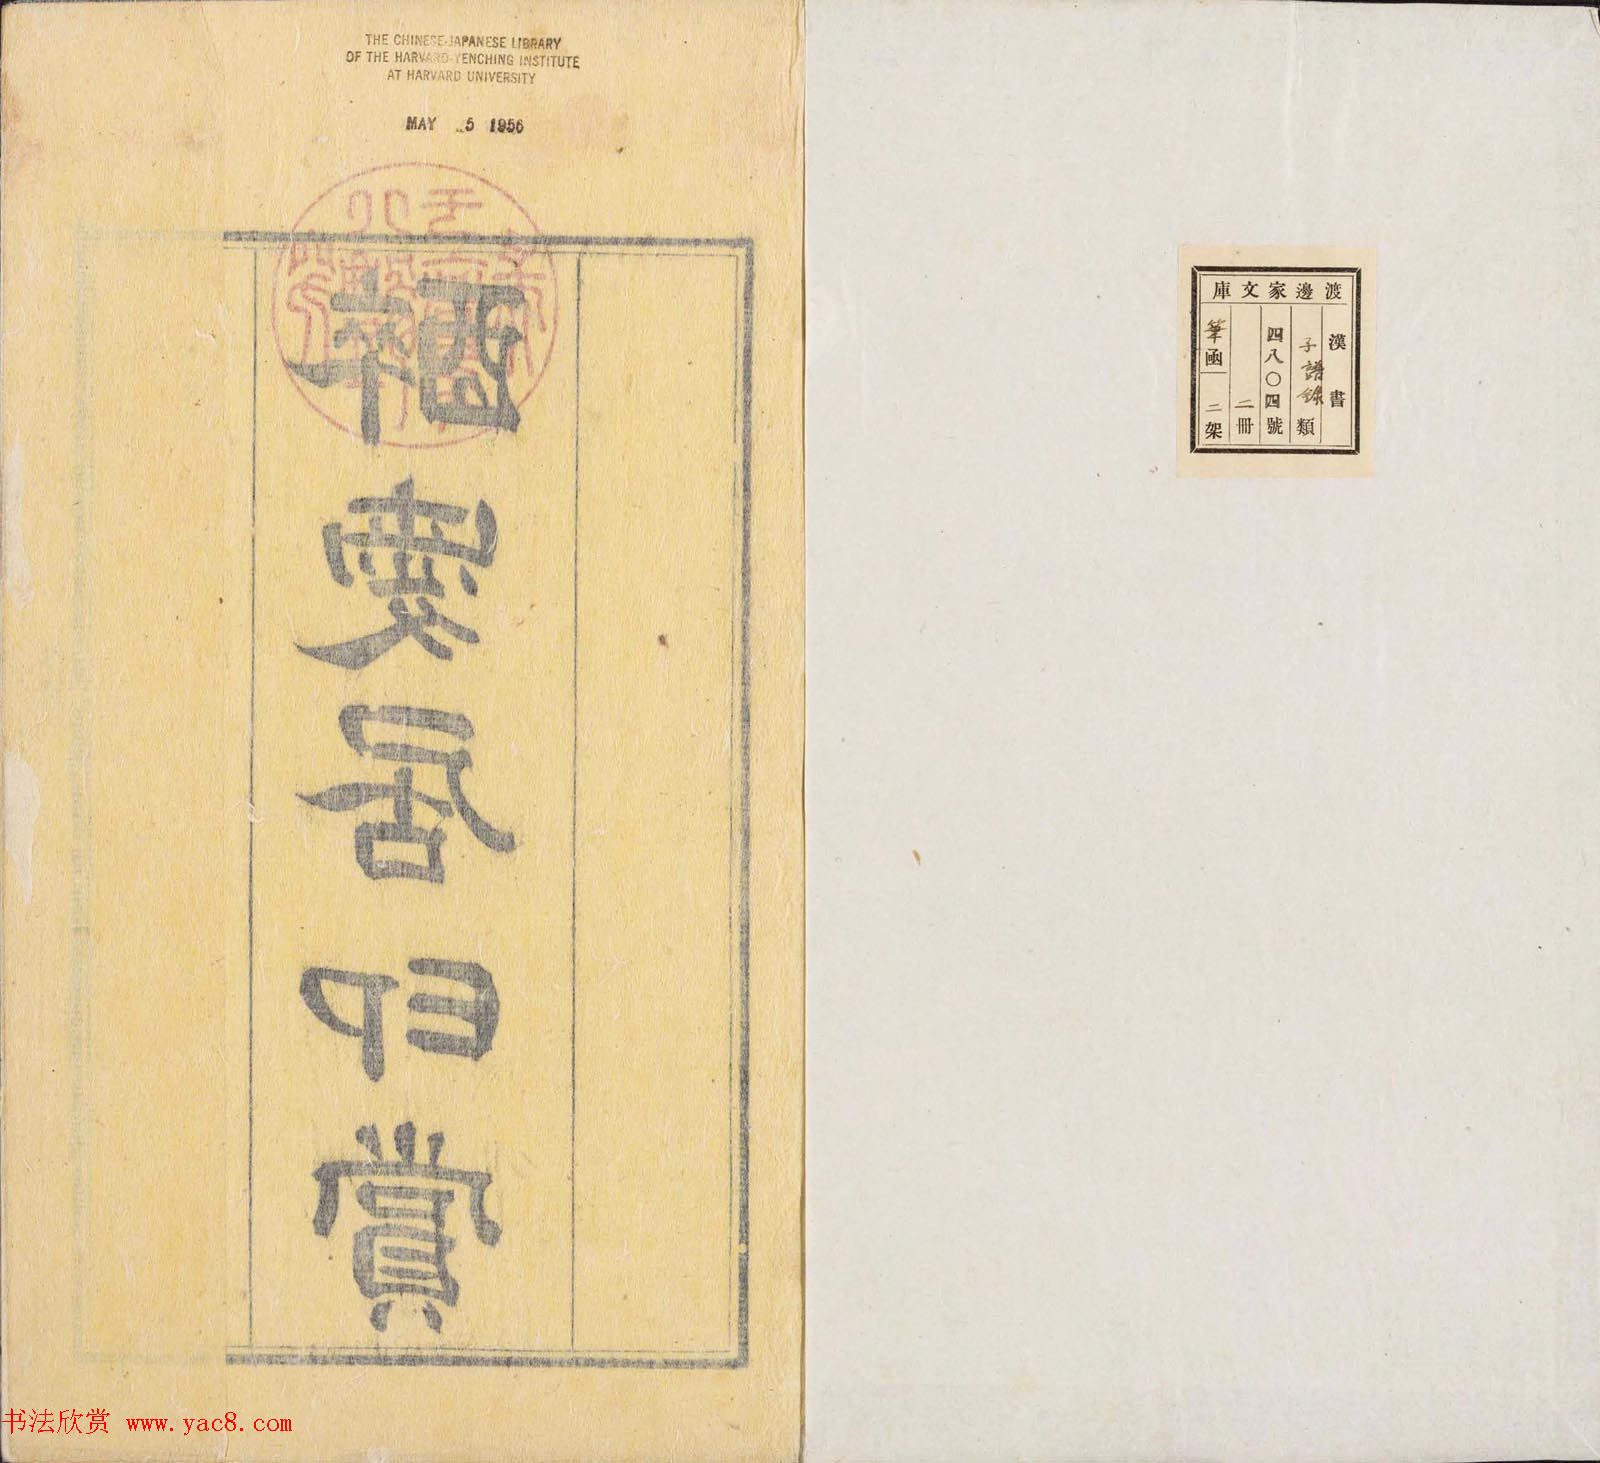 THE CHINESE-JAPANESE LIBRARY
OF THE HARVARD-YENCHING INSTITUTE
AT HARVARD UNIVERSITY
MAY 5 1956
醉愛居印賞
渡邊家文庫
漢書
子譜錄類
四八〇四號
二冊
筆函二架
书法欣赏 www.yac8.com